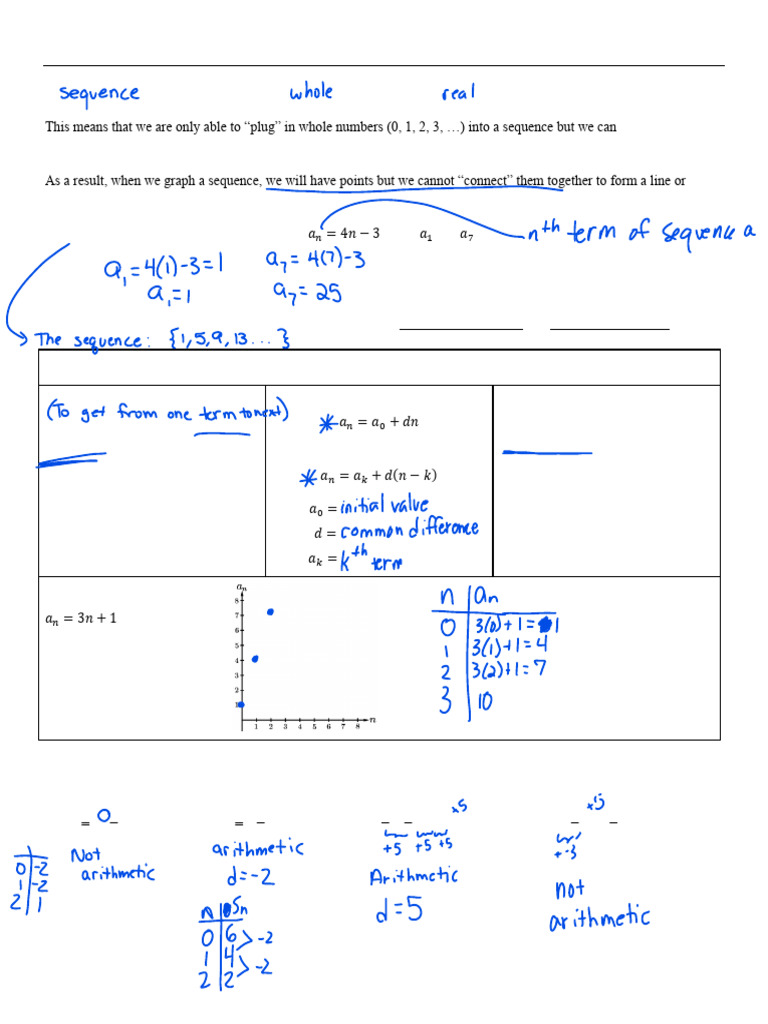 sequence whole real
This means that we are only able to “plug” in whole numbers (0, 1, 2, 3, …) into a sequence but we can
As a result, when we graph a sequence, we will have points but we cannot “connect” them together to form a line or
aₙ = 4n − 3 a₁ a₇ nth term of sequence a
a₁ = 4(1)-3 = 1 a₇ = 4(7)-3
a₁ = 1 a₇ = 25
The sequence: {1, 5, 9, 13 ... }
(To get from one term to next)
* aₙ = a₀ + dn
* aₙ = aₖ + d(n − k)
a₀ = initial value
d = common difference
aₖ = kth term
aₙ = 3n + 1
aₙ
8
7
6
5
4
3
2
1
1 2 3 4 5 6 7 8 n
n aₙ
0 3(0)+1 = 1
1 3(1)+1 = 4
2 3(2)+1 = 7
3 10
= 0 − = − − − x5 − x5 −
+5 +5 +5 + -3
Not arithmetic
0 -2
1 -2
2 1
arithmetic
d = -2
n Sn
0 6 > -2
1 4 > -2
2 2
Arithmetic
d = 5
not
arithmetic